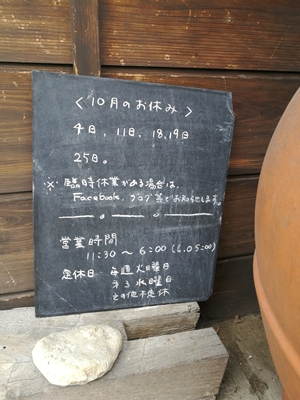 ＜10月のお休み＞
4日、11日、18、19日
25日。
※ 臨時休業がある場合は、
Facebook、ブログ等でお知らせします。
営業時間
11:30 〜 6:00 (L.O 5:00)
定休日 毎週火曜日
第3水曜日
その他不定休